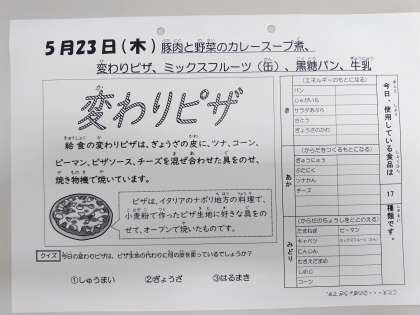 5月23日(木) 豚肉と野菜のカレースープ煮、
変わりピザ、ミックスフルーツ(缶)、黒糖パン、牛乳
変わりピザ
給食の変わりピザは、ぎょうざの皮に、ツナ、コーン、
ピーマン、ピザソース、チーズを混ぜ合わせた具をのせ、
焼き物機で焼いています。
ピザは、イタリアのナポリ地方の料理で、
小麦粉で作ったピザ生地に好きな具をの
せて、オーブンで焼いたものです。
クイズ 今日の変わりピザは、ピザ生地の代わりに何の皮を使っているでしょうか?
①しゅうまい ②ぎょうざ ③はるまき
今日、使用している食品は
17
種類です。
き
(エネルギーのもとになる)
パン
じゃがいも
サラダあぶら
さとう
ぎょうざのかわ
あか
(からだをつくるもとになる)
ぎゅうにゅう
ぶたにく
ツナかん
チーズ
みどり
(からだのちょうしをととのえる)
たまねぎ ピーマン
キャベツ ミックスフルーツかん
にんじん
むきえだまめ
しめじ
コーン